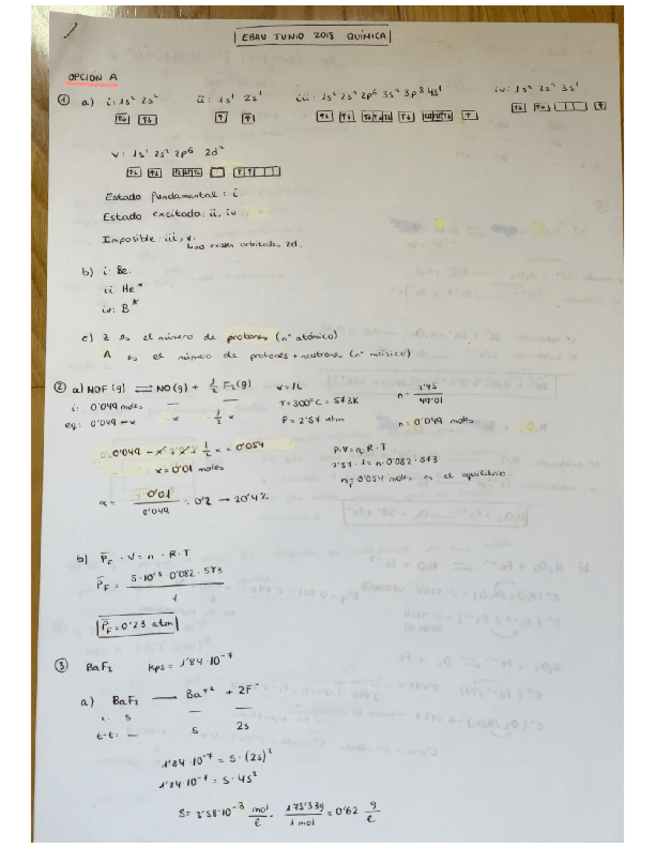 EBAU JUNIO 2018 QUÍMICA
OPCIÓN A
① a) i: 1s² 2s² ii: 1s¹ 2s¹ iii: 1s² 2s² 2p⁶ 3s² 3p⁸ 4s¹ iv: 1s² 2s² 3s¹
v: 1s² 2s² 2p⁶ 2d²
Estado fundamental: i.
Estado excitado: ii, iv
Imposible: iii, v.
no existen orbitales 2d.
b) i: Be.
ii: He*
iv: B*
c) Z es el número de protones (nº atómico)
A es el número de protones + neutrones (nº másico)
② a) NOF (g) ⇌ NO(g) + ½ F₂(g) V = 1L n = 2'45 / 49'01
i: 0'049 moles — — T = 300°C = 573K
eq: 0'049 - x x ½ x P = 2'57 atm n = 0'049 moles
0'049 - x + x + ½ x = 0'054 P·V = n·R·T
x = 0'01 moles 2'57 · 1 = n · 0'082 · 573
nT = 0'054 moles en el equilibrio.
α = 0'01 / 0'049 = 0'2 → 20'4%
b) PF · V = n · R · T
PF = 5·10⁻³ · 0'082 · 573 / 1
PF = 0'23 atm
③ BaF₂ Kps = 1'84·10⁻⁷
a) BaF₂ — Ba⁺² + 2F⁻
i. s — —
t-t: — s 2s
1'84·10⁻⁷ = s·(2s)²
1'84·10⁻⁷ = s·4s²
S = 3'58·10⁻³ mol/l · 175'33g / 1 mol = 0'62 g/l